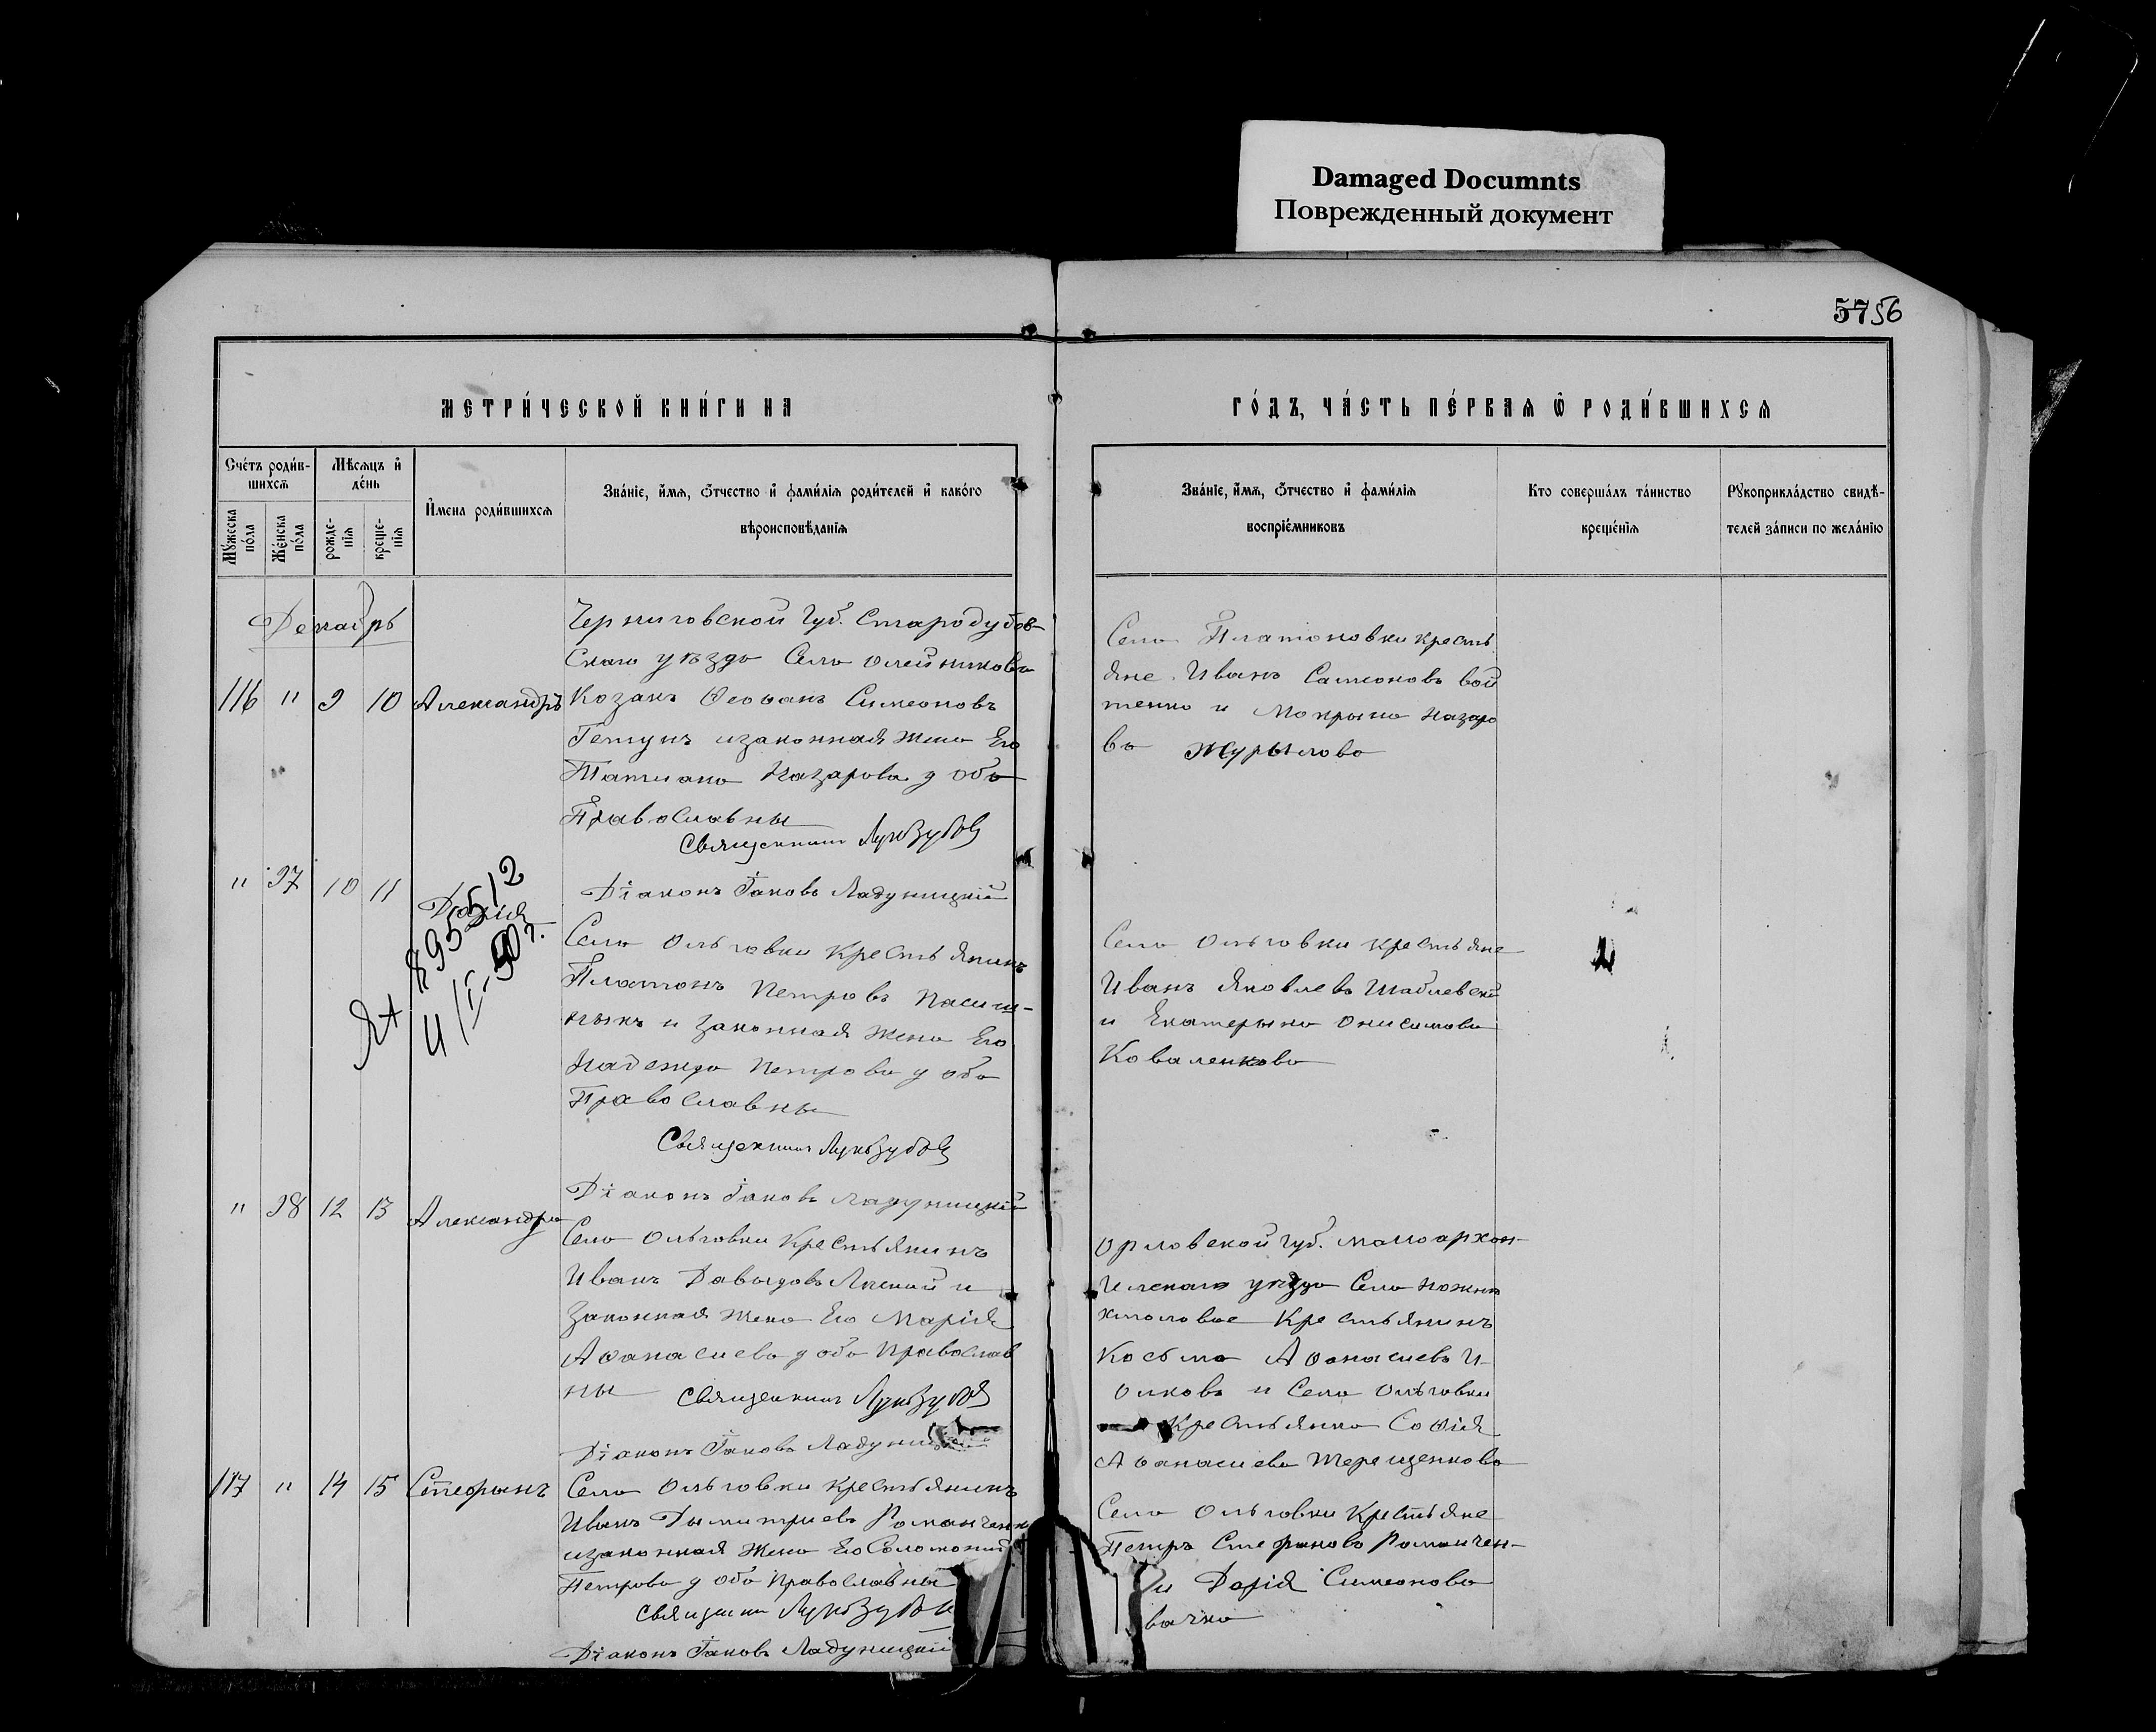 Damaged Documnts
Поврежденный документ
57 56
МЕТРИ́ЧЕСКОЙ КНИ́ГИ НА
ГО́ДЪ, ЧА́СТЬ ПЕ́РВАЯ Ѿ РОДИ́ВШИХСѦ
Сче́тъ роди́в-
шихсѧ
Мꙋ́жеска
по́ла
Же́нска
по́ла
Мѣ́сѧцъ и҆
де́нь
рожде-
нїѧ
креще-
нїѧ
И҆мена роди́вшихсѧ
Зва́нїе, и҆́мѧ, ѻ҆́тчество и҆ фами́лїѧ роди́телей и҆ како́гѡ
вѣроисповѣ́данїѧ
Зва́нїе, и҆́мѧ, ѻ҆́тчество и҆ фами́лїѧ
воспрїе́мниковъ
Кто соверша́лъ та́инство
креще́нїѧ
Рꙋкоприкла́дство свидѣ́-
телей за́писи по жела́нїю
Декабрь
116 " 9 10 Александръ
Черниговской Губ. Стародубов-
скаго уѣзда Села Олейникова
Козакъ Ѳеофанъ Симеоновъ
Гетунъ изаконная жена Его
Татиана Назарова д оба
Православны
Священникъ
Діаконъ Іаковъ Ладуницкій
Села Платоновки кресть
яне Иванъ Самсоновъ Вой
тенко и Мокрына Назаро
ва Журылова
" 97 10 11 Дарія
ЯА № 955512
4/I-50г.
Села Ольговки Крестьянинъ
Платонъ Петровъ Пасич-
ныкъ и законная жена Его
Надежда Петрова д оба
Православны
Священникъ
Діаконъ Іаковъ Ладуницкій
Села Ольговки крестьяне
Иванъ Яковлевъ Шаблевскій
и Екатерына Онисимова
Коваленкова
" 98 12 13 Александра
Села Ольговки Крестьянинъ
Иванъ Давыдовъ Лыскій и
законная жена Его Марія
Аѳанасиева д оба Православ
ны Священникъ
Діаконъ Іаковъ Ладуницкій
Орловской Губ. Малоархан-
гельскаго уѣзда Села
Крестьянинъ
Косьма Аѳанасиевъ И-
и Села Ольговки
Крестьянка Софія
Аѳанасиева Терещенкова
117 " 14 15 Стефанъ
Села Ольговки крестьянинъ
Иванъ Дымитриевъ Романченк
изаконная жена Его Соломонид
Петрова д оба Православны
Священник
Діаконъ Іаковъ Ладуницкій
Села Ольговки Крестьяне
Петръ Стефановъ Романчен-
и Дарія Симеонова
вачка